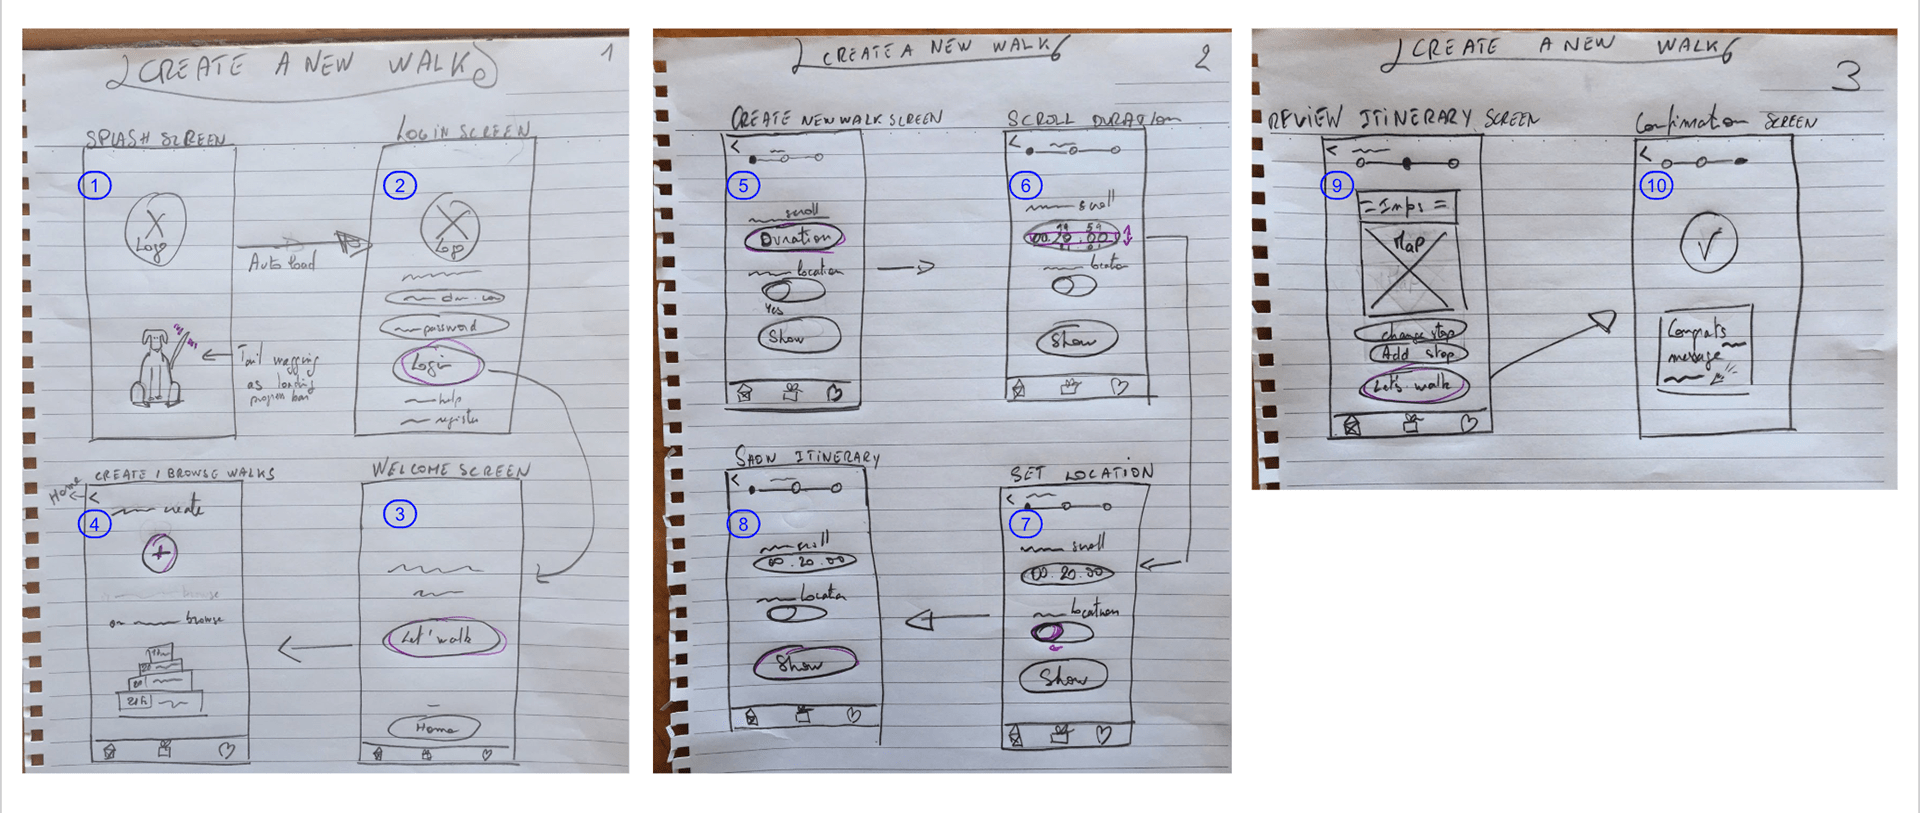 CREATE A NEW WALK
1
SPLASH SCREEN
1
Logo
Auto load
Tail wagging
as loading
progress bar
LOGIN SCREEN
2
Logo
password
Login
help
register
WELCOME SCREEN
3
Let' walk
Home
CREATE / BROWSE WALKS
Home
<
4
create
+
or browse
CREATE A NEW WALK
2
CREATE NEW WALK SCREEN
<
5
scroll
Duration
location
Yes
Show
SCROLL DURATION
<
6
scroll
19 59
00.20.00
21 01
location
Show
SET LOCATION
<
7
scroll
00.20.00
location
Show
SHOW ITINERARY
<
8
scroll
00.20.00
location
Show
CREATE A NEW WALK
3
REVIEW ITINERARY SCREEN
<
9
Map
change stop
Add stop
Let's walk
Confirmation SCREEN
<
10
Congrats
message